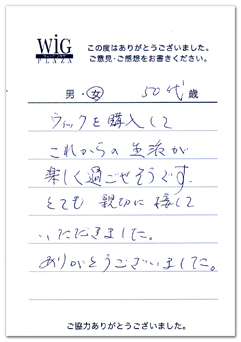 WiG
PLAZA
この度はありがとうございました。
ご意見・ご感想をお書きください。
男・女 50代 歳
ウィックを購入して
これからの生活が
楽しく過ごせそうです。
とても 親切に 接して
いただきました。
ありがとうございました。
ご協力ありがとうございました。